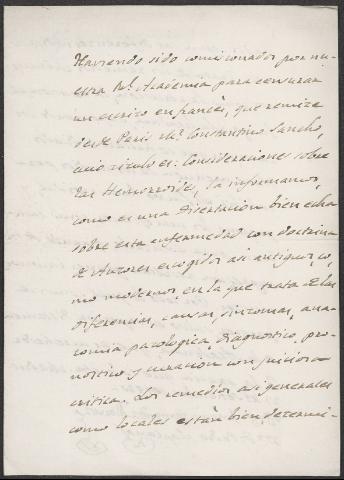 Haviendo sido comisionados por nu-
estra Rl. Academia para censurar
un escrito en frances, que remite
desde Paris Dn. Constantino Sancho,
cuio titulo es: Consideraciones sobre
las Hemorroides, la informamos,
como es una Disertacion bien echa
sobre esta enfermedad con doctrina
de Autores escogidos asi antiguos, co-
mo modernos, en la que trata de las
diferencias, causas, sintomas, ana-
tomia patologica, diagnostico, pro-
nostico y curacion con juiciosa
critica. Los remedios asi generales
como locales estan bien determi-